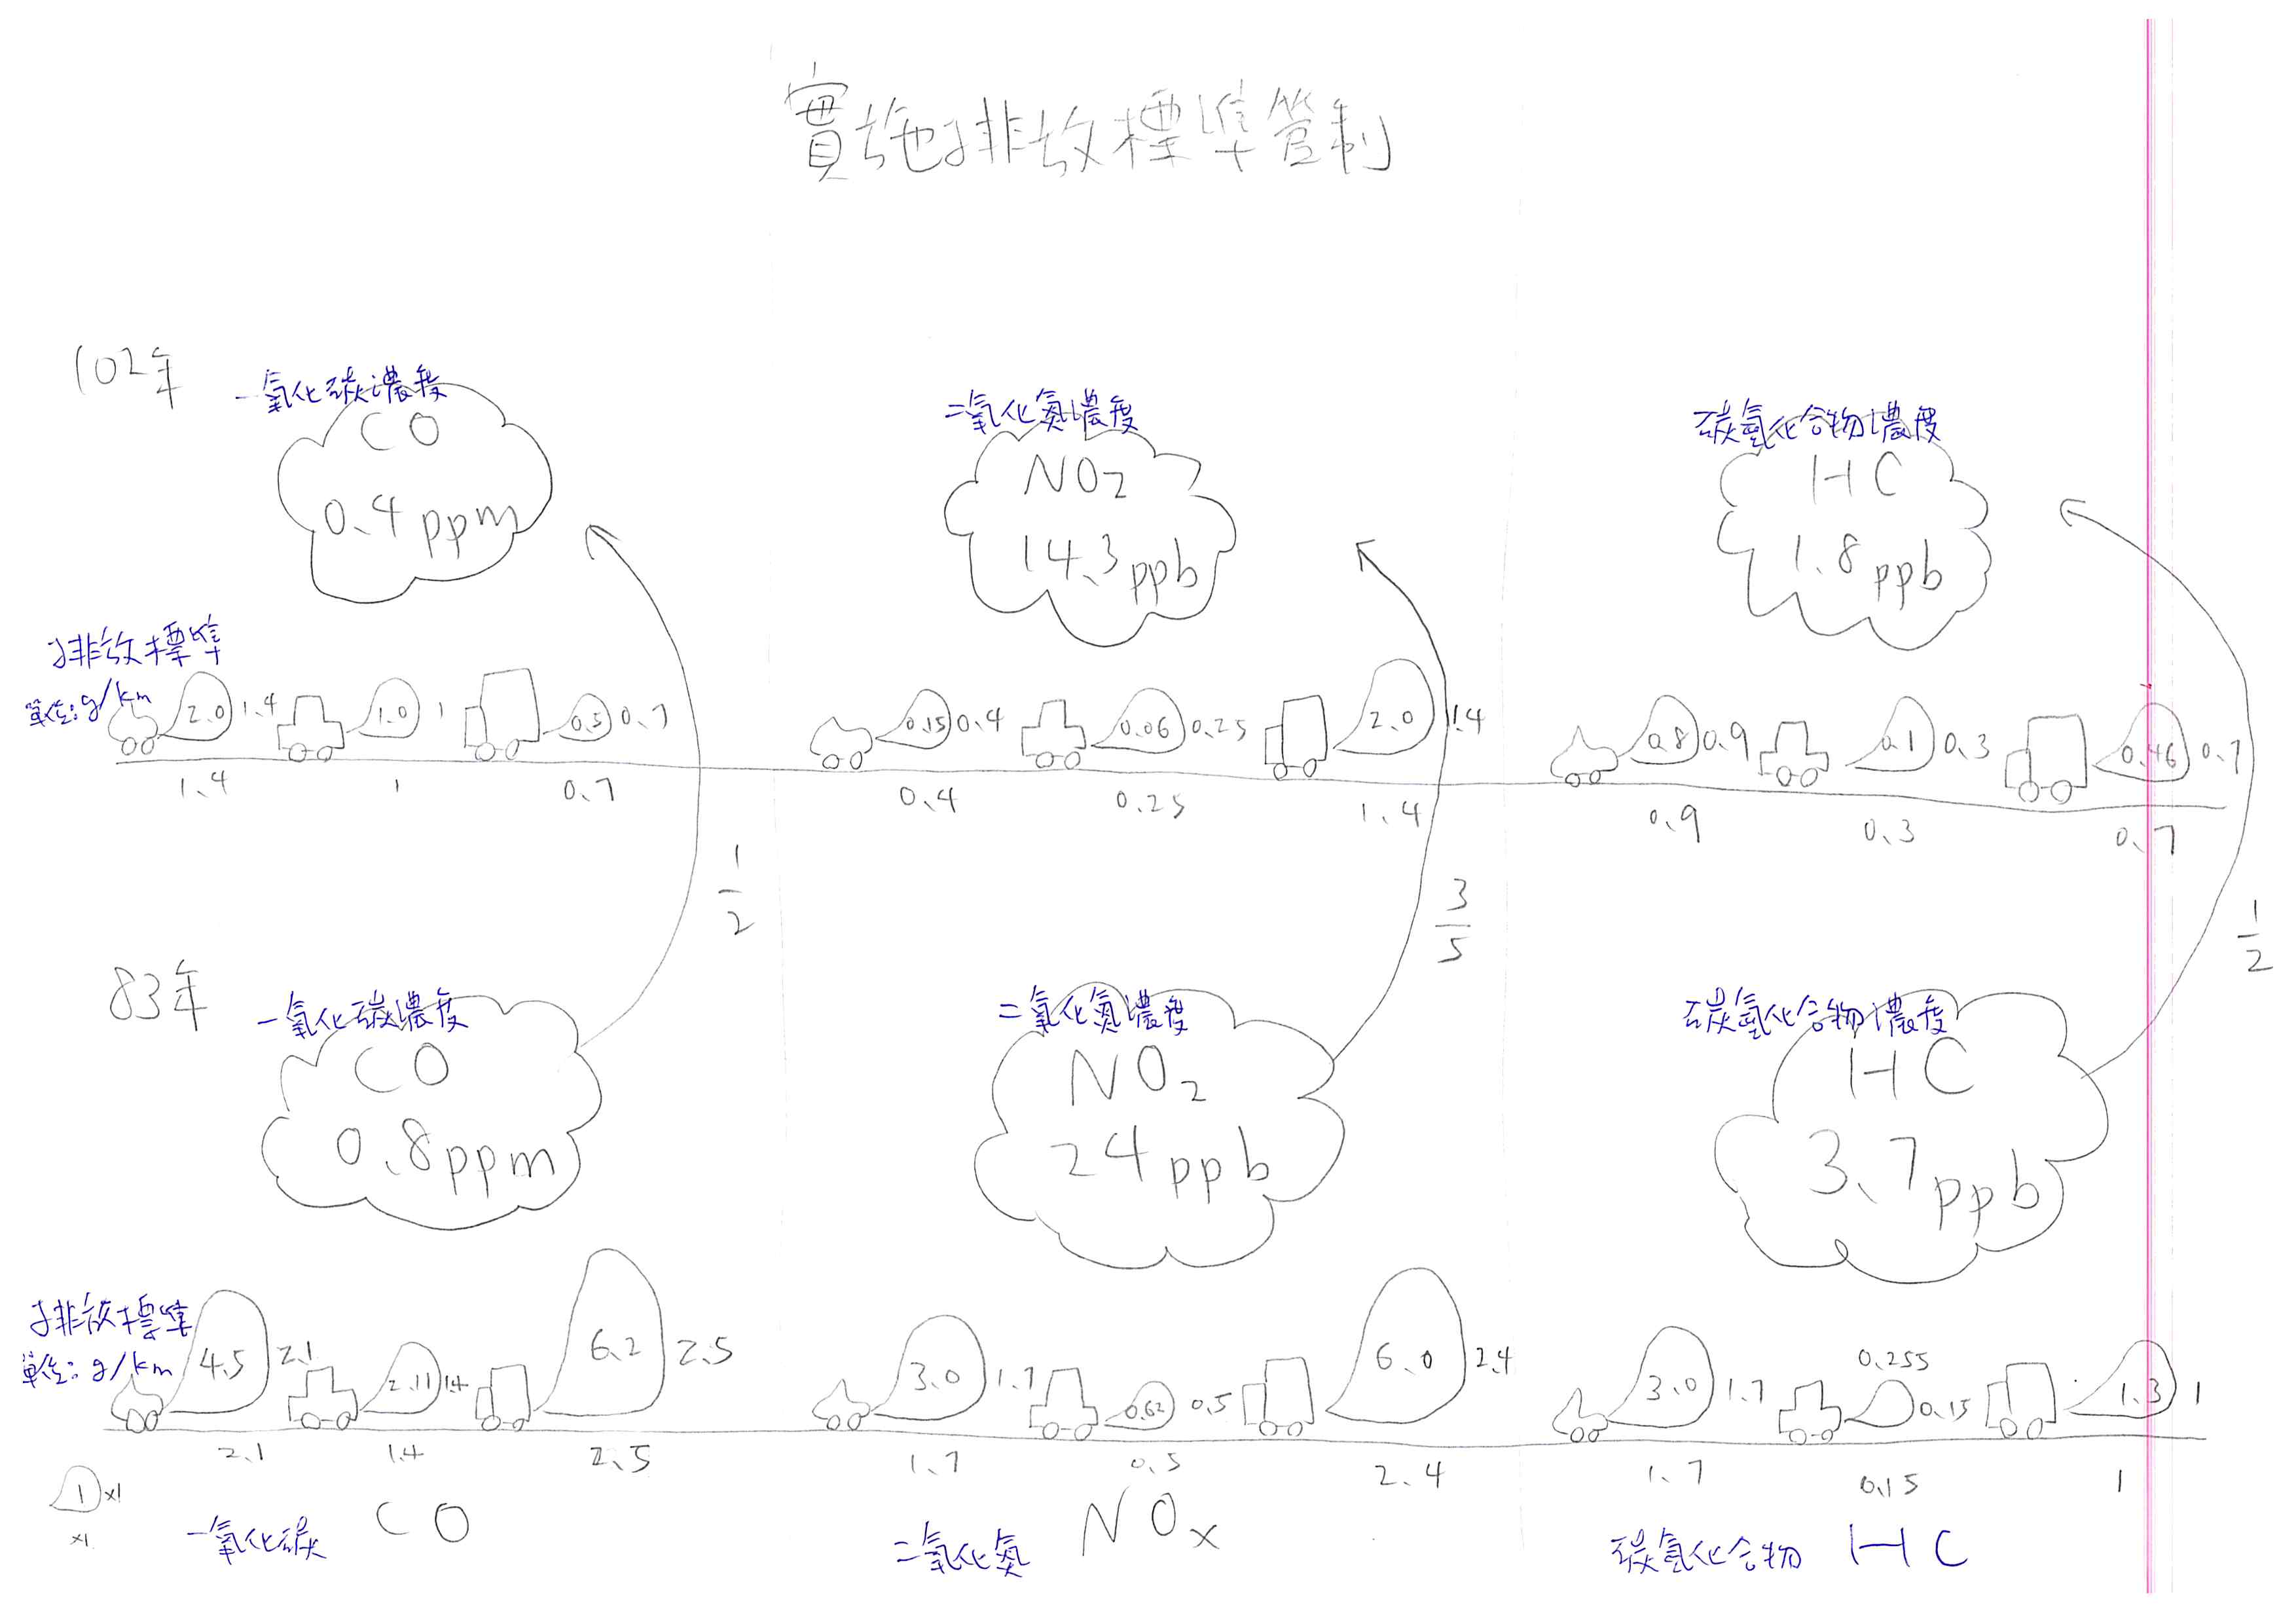 實施排放標準管制
102年
一氧化碳濃度
CO
0.4 ppm
二氧化氮濃度
NO2
14.3 ppb
碳氫化合物濃度
HC
1.8 ppb
排放標準
單位: g/km
2.0 1.4 1.0 1 0.5 0.7
0.15 0.4 0.06 0.25 2.0 1.4
0.8 0.9 0.1 0.3 0.46 0.7
1.4 1 0.7
0.4 0.25 1.4
0.9 0.3 0.7
1/2
3/5
1/2
83年
一氧化碳濃度
CO
0.8 ppm
二氧化氮濃度
NO2
24 ppb
碳氫化合物濃度
HC
3.7 ppb
排放標準
單位: g/km
4.5 2.1 2.11 1.4 6.2 2.5
3.0 1.7 0.62 0.5 6.0 2.4
0.255
3.0 1.7 0.15 1.3 1
2.1 1.4 2.5
1.7 0.5 2.4
1.7 0.15 1
1 x1
x1
一氧化碳 CO
二氧化氮 NOx
碳氫化合物 HC